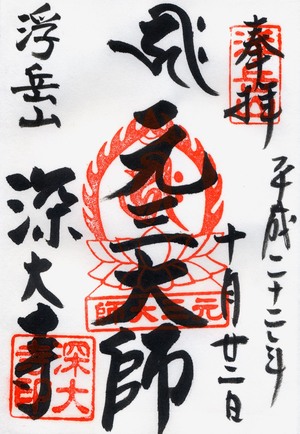 奉拝
平成二十二年
十月廿二日
元三大師
元三大師
浮岳山
深大寺
深大
寺印